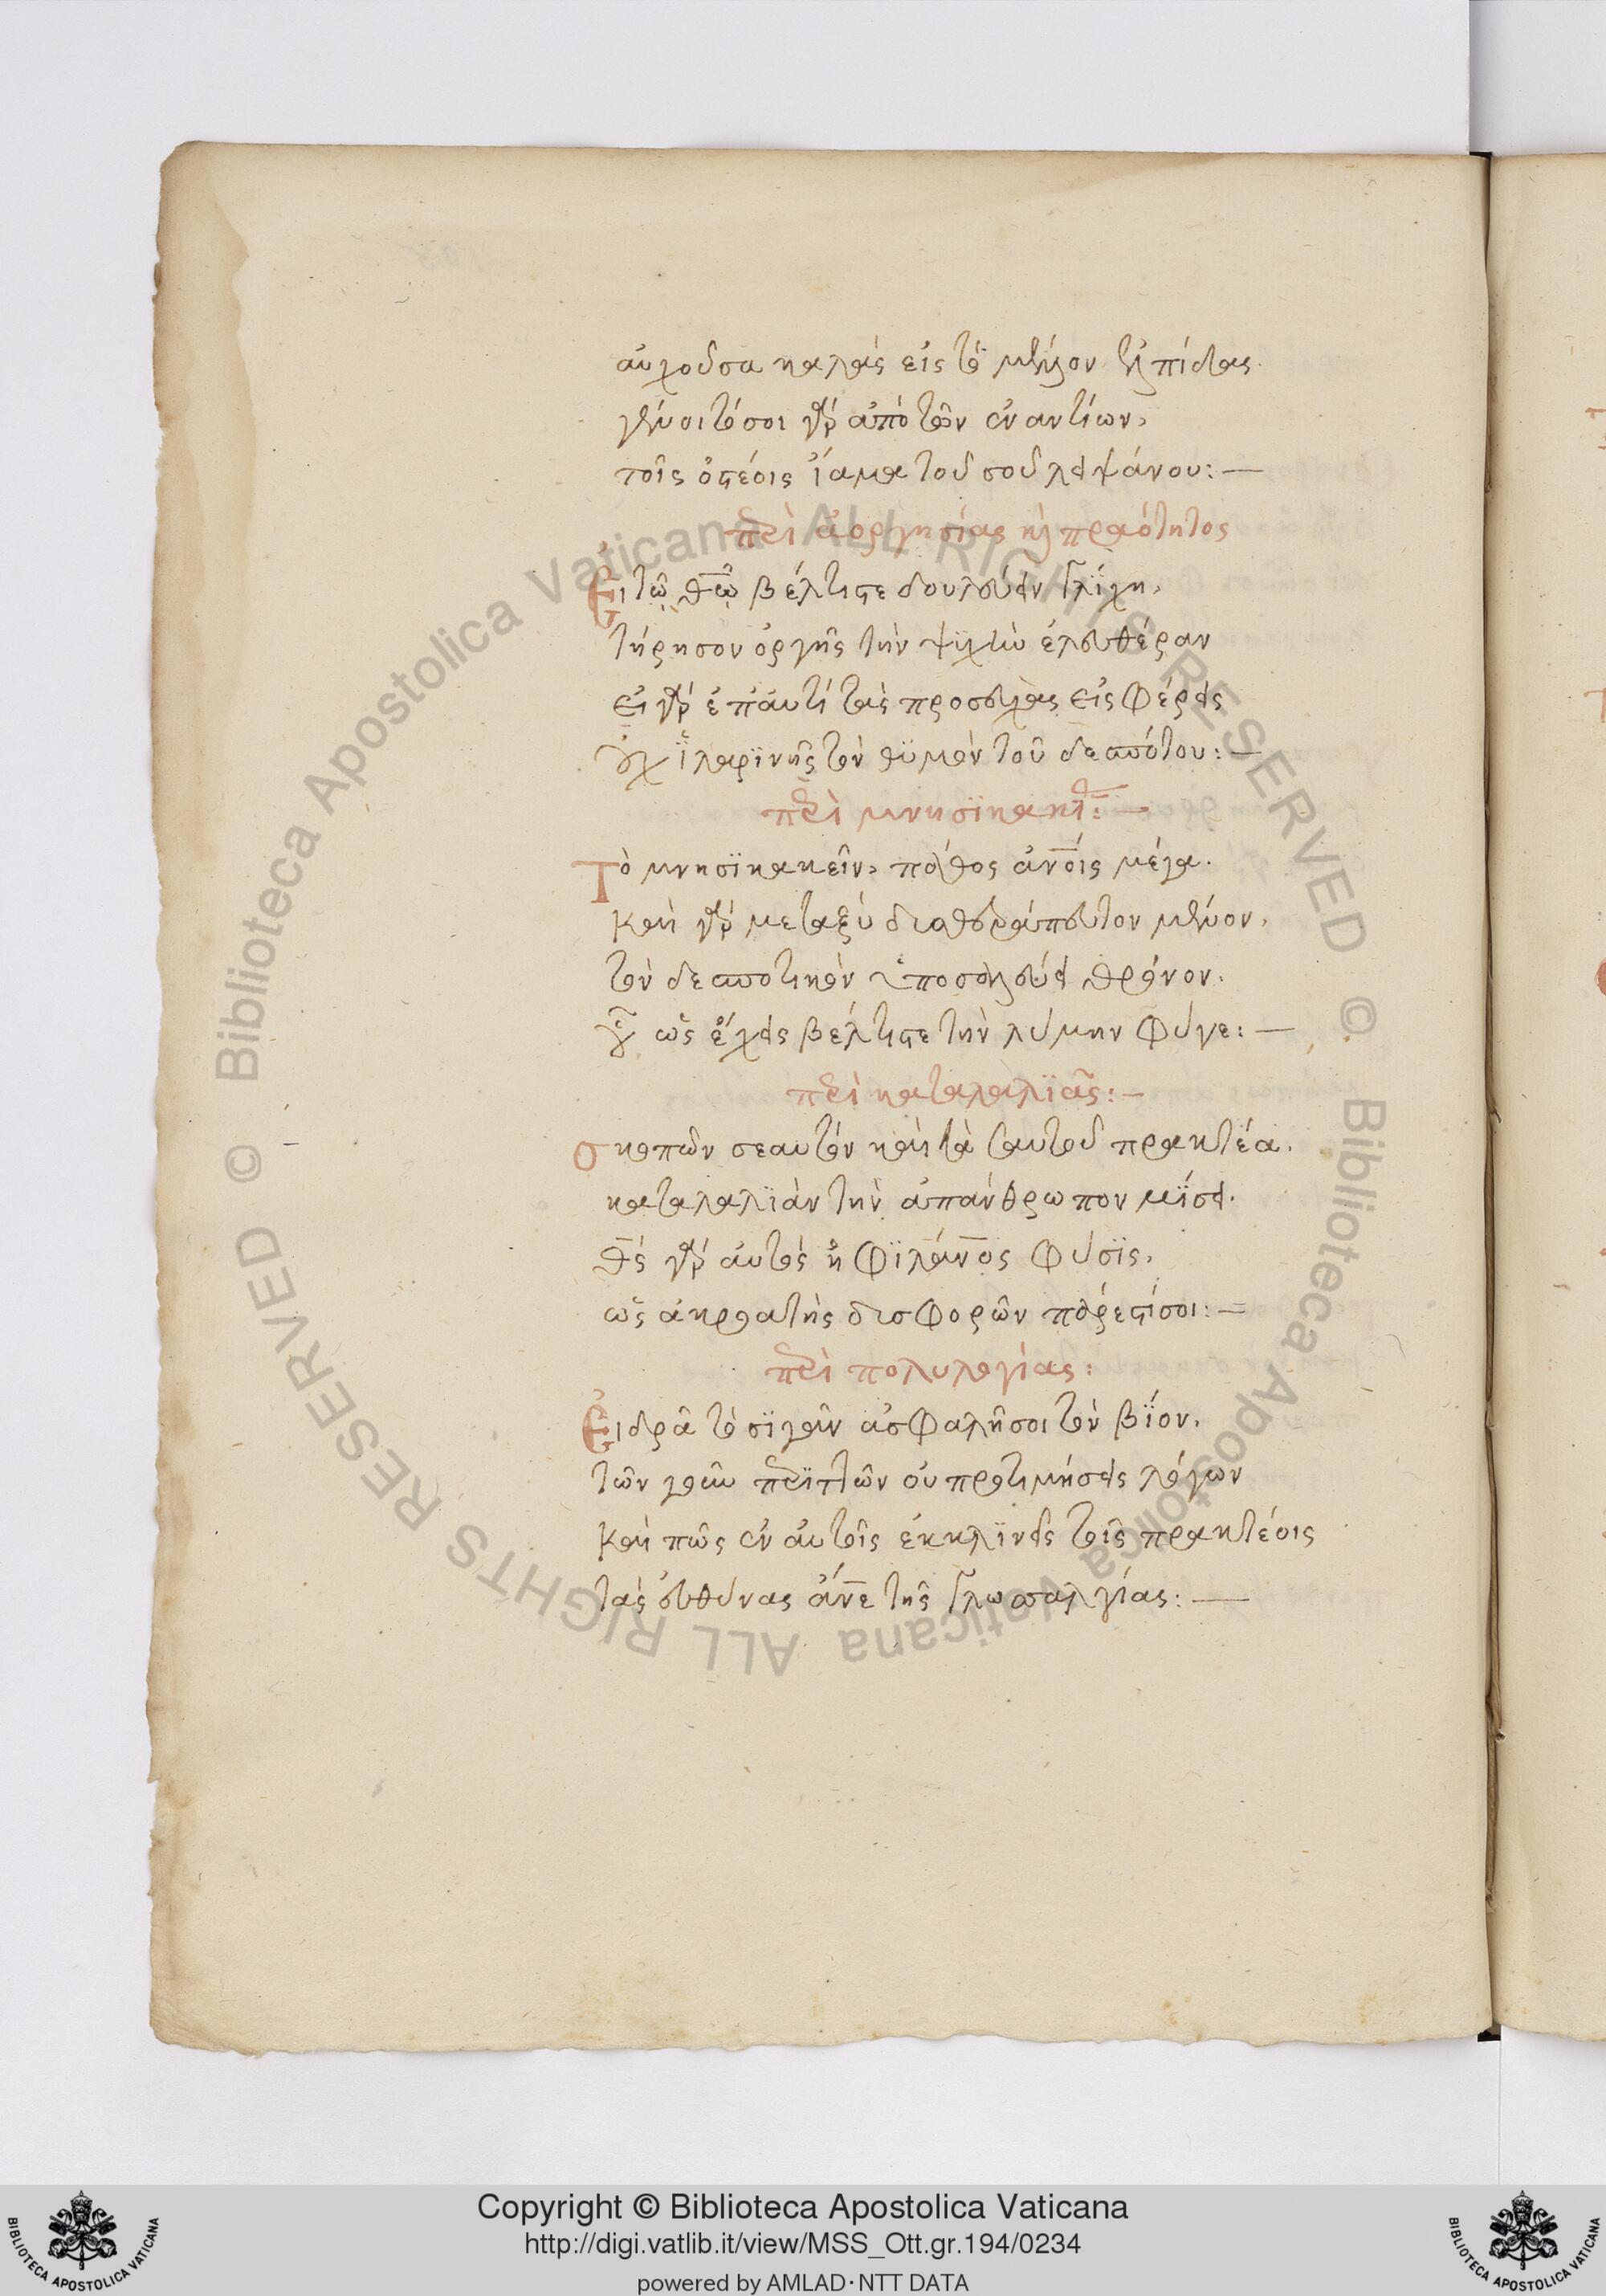 αὐχοῦσα καλὰς εἰς τὸ μέλλον ἐλπίδας.
γένοιτό σοι γὰρ ἀπὸ τῶν ἐναντίων,
τοῖς ὀστέοις ἴαμα τοῦ σοῦ λειψάνου: —
περὶ ἀοργησίας καὶ πραότητος
Εἰ τῷ θῶ βέλτιστε δουλεύειν γλίχῃ,
τήρησον ὀργῆς τὴν ψϋχὴν ἐλευθέραν
εἰ γὰρ ἐπ' αὐτῇ τὰς προσευχὰς εἰσφέρεις
οὐχ ϊλαρϊνῆς τὸν θϋμὸν τοῦ δεσπότου: —
περὶ μνησϊκακίας: —
Τὸ μνησϊκακεῖν, πάθος ἀνοις μέγα.
Και γὰρ μεταξὺ διαθεράπευτον μένον,
τὸν δεσποτικὸν ὑποσαλεύει θρόνον.
γοῦν ὡς ἔχεις βέλτιστε τὴν λύμην φύγε: —
περὶ καταλαλϊᾶς: —
σκοπῶν σεαυτὸν καὶ τὰ σαυτοῦ πρακτέα.
καταλαλϊὰν τὴν ἀπάνθρωπον μϊσει.
θς γὰρ αὐτὸς ἡ φϊλανος φύσϊς,
ὡς ἀκροατὴς δισφορῶν πάρεστί σοι: —
περὶ πολυλογίας:
Εἰ δρᾶ τὸ σϊγᾶν ἀσφαλῆ σοι τὸν βϊον,
τῶν γοῦν περϊττῶν οὐ προτιμήσεις λόγων
Καὶ πῶς ἐν αὐτοῖς ἐκκλϊνεῖς τοῖς πρακτέοις
τὰς εὐθύνας ἄνε τῆς γλωσσαλγίας: —
Copyright © Biblioteca Apostolica Vaticana
http://digi.vatlib.it/view/MSS_Ott.gr.194/0234
powered by AMLAD·NTT DATA
BIBLIOTECA APOSTOLICA VATICANA
BIBLIOTECA APOSTOLICA VATICANA
© Biblioteca Apostolica Vaticana ALL RIGHTS RESERVED © Biblioteca Apostolica Vaticana ALL RIGHTS RESERVED